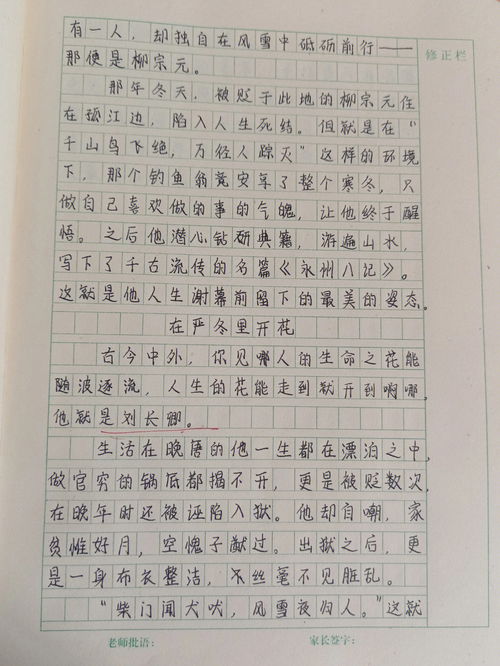 有一人，却独自在风雪中砥砺前行——
修正栏
那便是柳宗元。
那年冬天，被贬于此地的柳宗元住
在孤江边，陷入人生死结。但就是在“
千山鸟飞绝，万径人踪灭”这样的环境
下，那个钓鱼翁竟安享了整个寒冬，只
做自己喜欢做的事的气魄，让他终于醒
悟。之后他潜心钻研典籍，游遍山水，
写下了千古流传的名篇《永州八记》。
这就是他人生谢幕前留下的最美的姿态。
在严冬里开花
古今中外，你见哪人的生命之花能
随波逐流，人生的花能走到就开到啊哪
他就是刘长卿。
生活在晚唐的他一生都在漂泊之中，
做官穷的锅底都揭不开，更是被贬数次，
在晚年时还被诬陷入狱。他却自嘲，家
贫惟好月，空愧子猷过。出狱之后，更
是一身布衣整洁，不丝毫不见脏乱。
“柴门闻犬吠，风雪夜归人。”这就
老师批语：
家长签字：